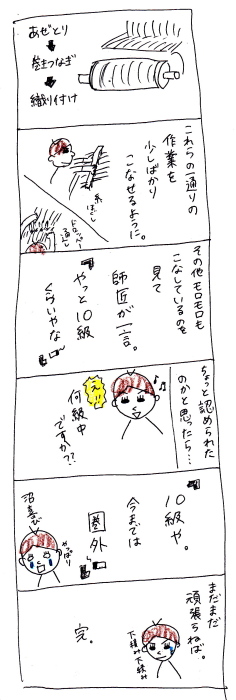 あぜとり
巻きつなぎ
織り付け
これらの一通りの
作業を
少しばかり
こなせるように。
糸はらし
ドロッパー
通し
その他モロモロも
こなしているのを
見て
師匠が一言。
やっと10級
くらいやな
ちょっと認められた
のかと思ったら…
えっ!!
何級中
ですか??
10級や。
今までは
圏外
やっぱり
沼喜び
まだまだ
頑張らねば。
下積み下積み
完。